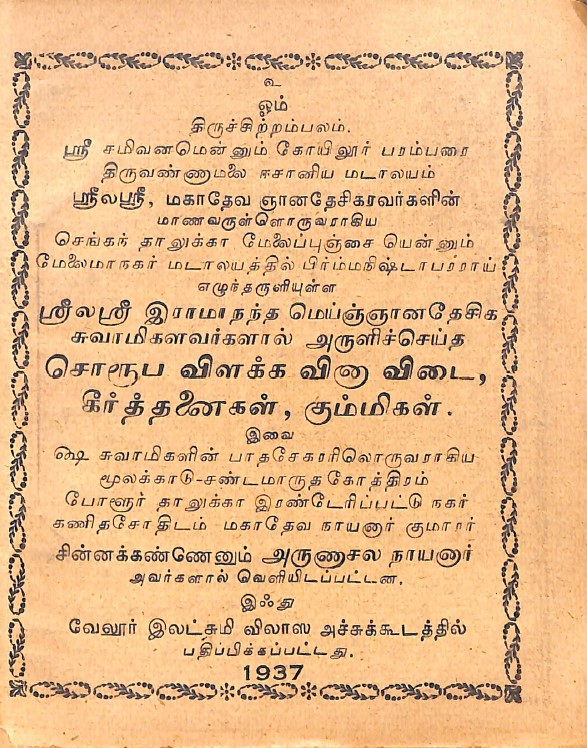 உ
ஓம்
திருச்சிற்றம்பலம்.
ஸ்ரீ சமிவனமென்னும் கோயிலூர் பரம்பரை
திருவண்ணாமலை ஈசானிய மடாலயம்
ஸ்ரீலஸ்ரீ, மகாதேவ ஞானதேசிகரவர்களின்
மாணவருள்ளொருவராகிய
செங்கந் தாலுக்கா மேலைப்புஞ்சை யென்னும்
மேலைமாநகர் மடாலயத்தில் பிர்ம்மநிஷ்டாபரராய்
எழுந்தருளியுள்ள
ஸ்ரீலஸ்ரீ இராமாநந்த மெய்ஞ்ஞானதேசிக
சுவாமிகளவர்களால் அருளிச்செய்த
சொரூப விளக்க வினா விடை,
கீர்த்தனைகள், கும்மிகள்.
இவை
௸ சுவாமிகளின் பாதசேகரரிலொருவராகிய
மூலக்காடு-சண்டமாருதகோத்திரம்
போளூர் தாலுக்கா இரண்டேரிப்பட்டு நகர்
கணிதசோதிடம் மகாதேவ நாயனார் குமாரர்
சின்னக்கண்ணெனும் அருணாசல நாயனார்
அவர்களால் வெளியிடப்பட்டன.
இஃது
வேலூர் இலட்சுமி விலாஸ அச்சுக்கூடத்தில்
பதிப்பிக்கப்பட்டது.
1937